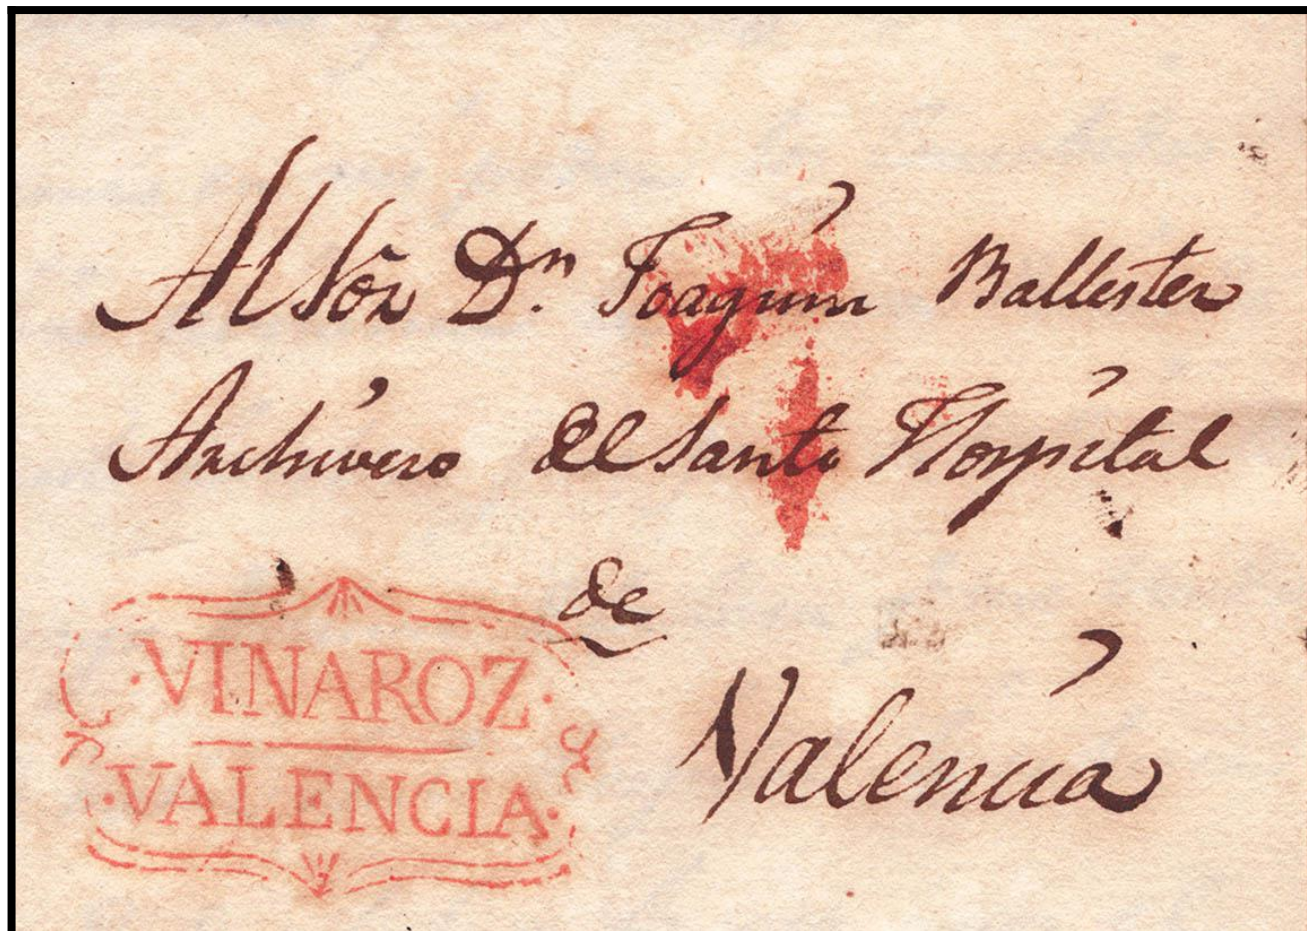 Al Sõr Dⁿ. Joaquin Ballester
Archivero del Santo Hospital
de
Valencia
7
·VINAROZ·
·VALENCIA·